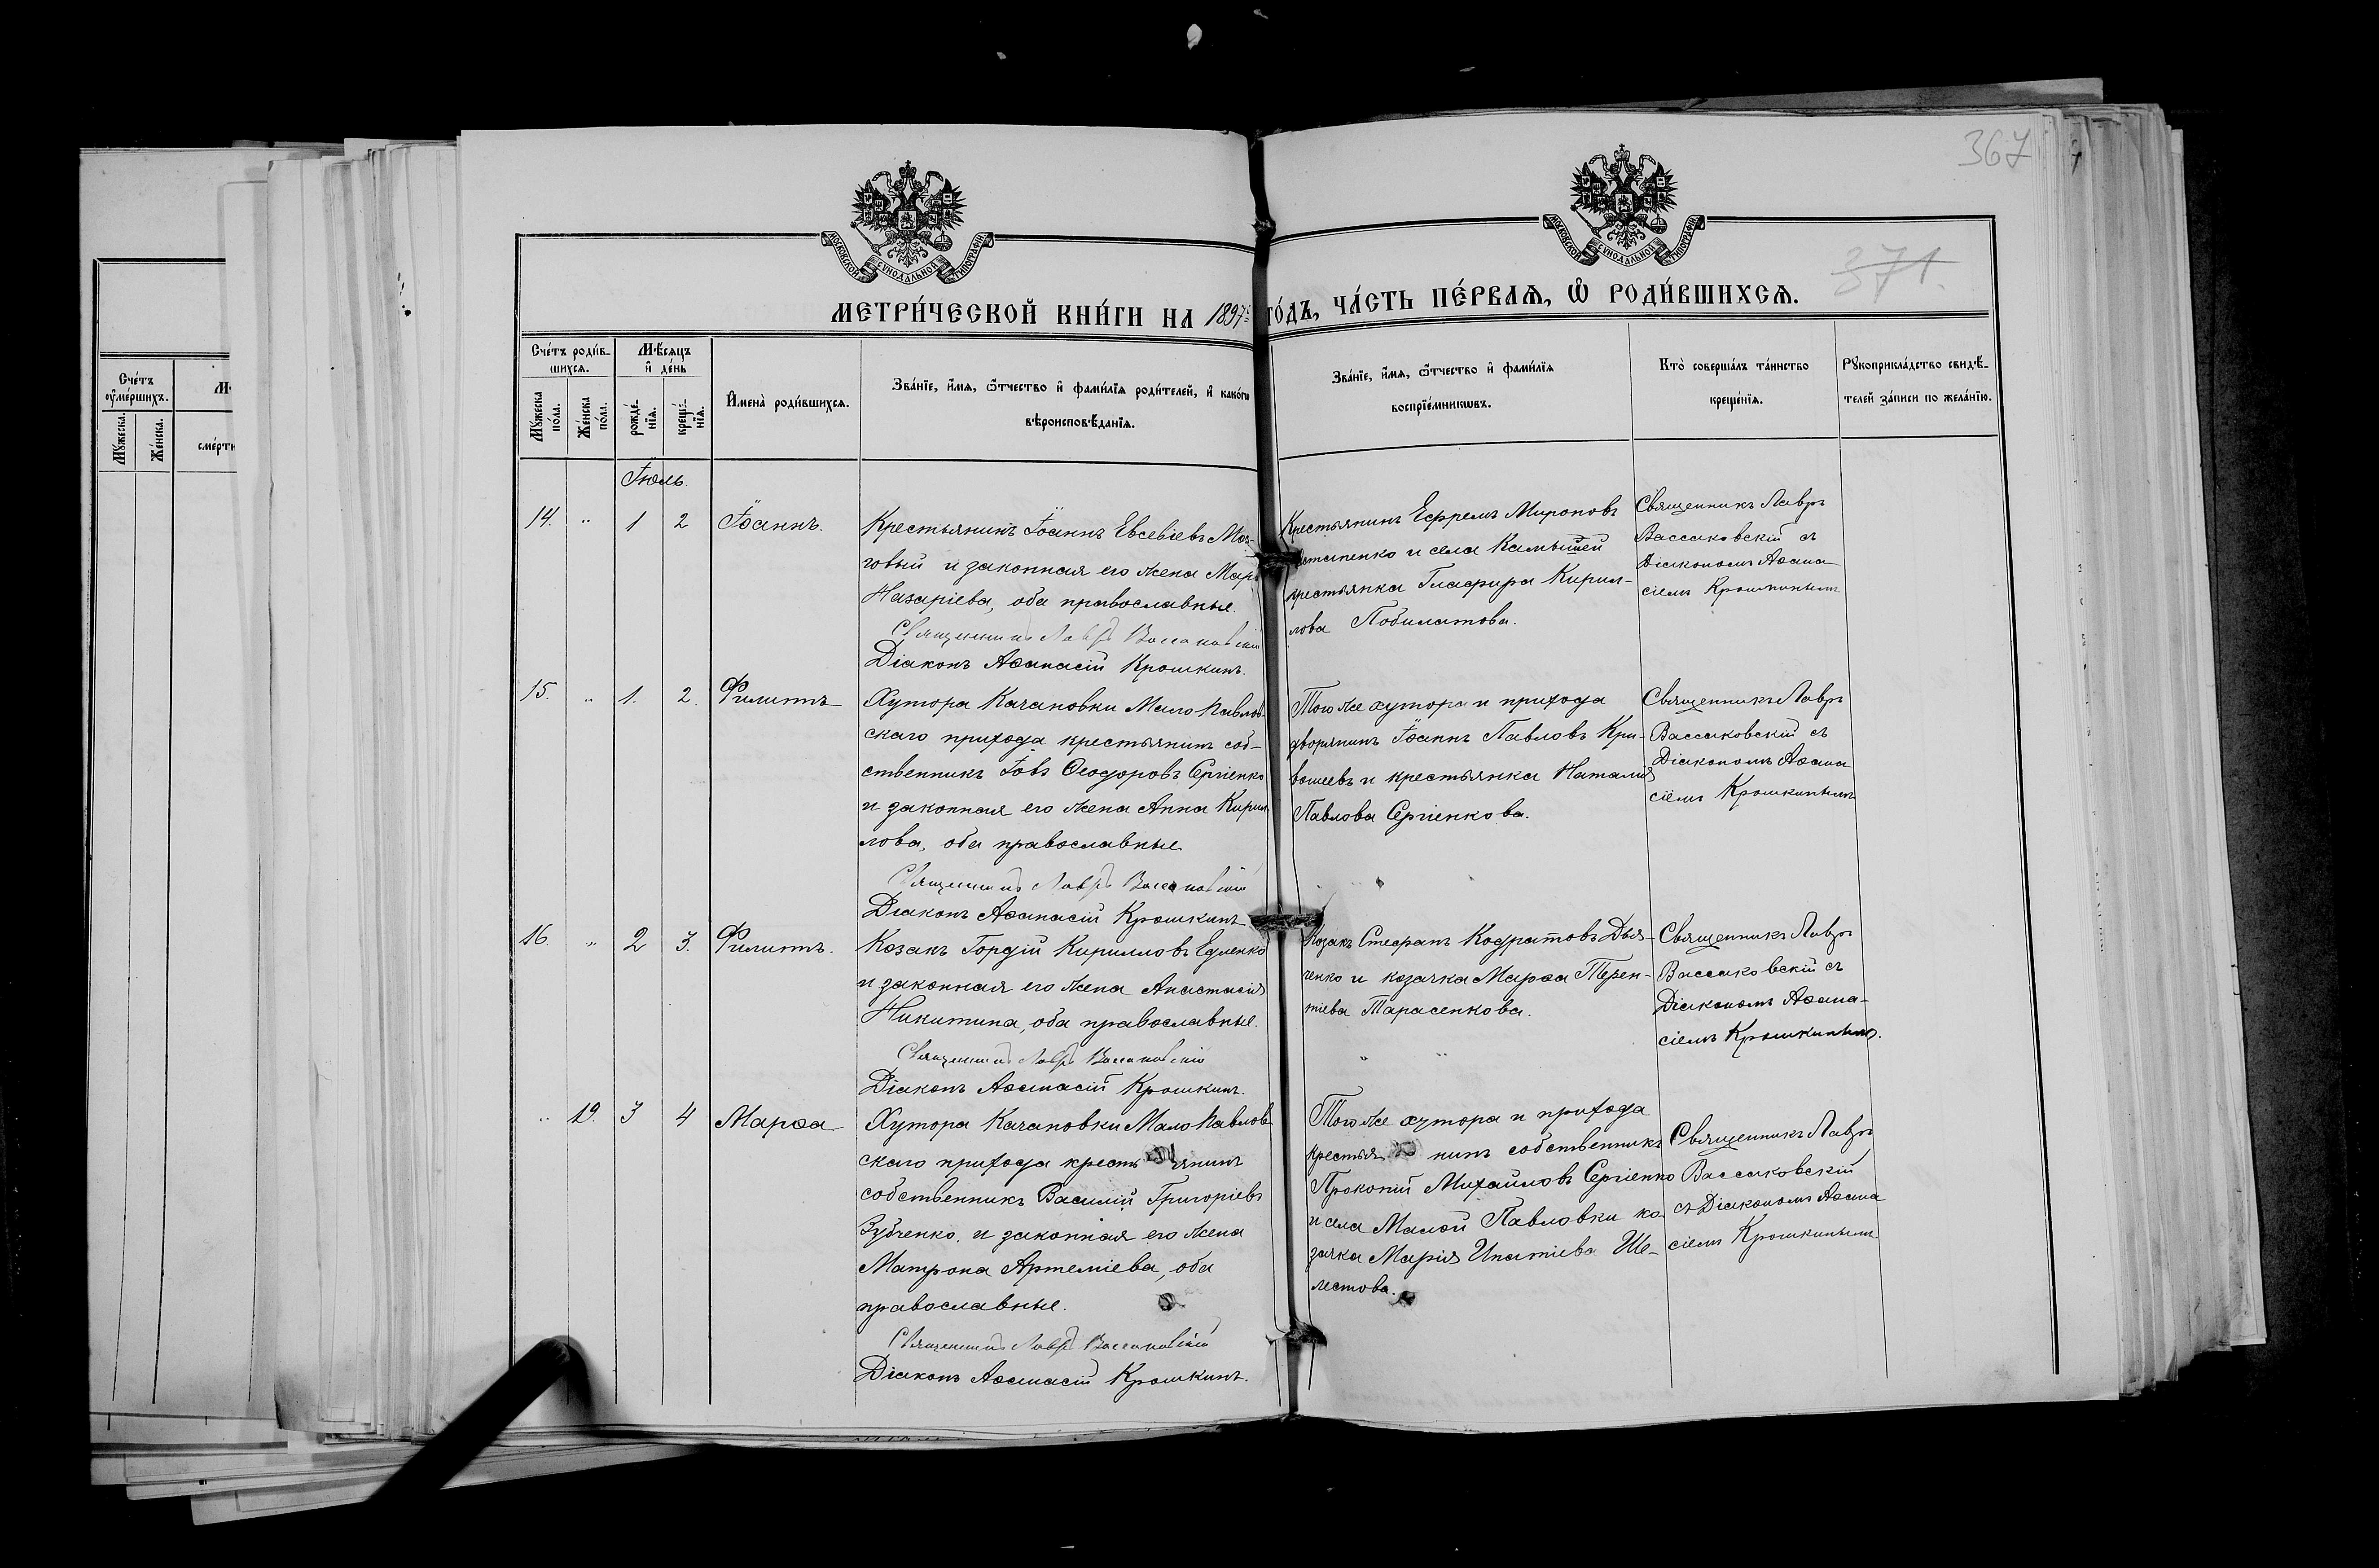 367
371.
МОСКОВСКОЙ СѴНОДАЛЬНОЙ ТИПОГРАФІИ
МОСКОВСКОЙ СѴНОДАЛЬНОЙ ТИПОГРАФІИ
МЕТРИ́ЧЕСКОЙ КНИ́ГИ НА 1897 ГО́ДЪ, ЧА́СТЬ ПЕ́РВАЯ, Ѡ҆ РОДИ́ВШИХСЯ.
Сче́тъ ᲂу҆ме́ршихъ.
Мꙋ́жеска.
Же́нска.
сме́рти
Сче́тъ роди́в-
шихся.
Мꙋ́жеска по́ла.
Же́нска по́ла.
Мѣ́сяцъ
и҆ де́нь
рожде́-
нїя.
креще́-
нїя.
И҆мена̀ роди́вшихся.
Зва́нїе, и҆́мя, ѻ҆́тчество и҆ фами́лїя роди́телей, и҆ како́гѡ
вѣроисповѣ́данїя.
Зва́нїе, и҆́мя, ѻ҆́тчество и҆ фами́лїя
воспрїе́мникѡвъ.
Кто̀ соверша́лъ та́инство
креще́нїя.
Рꙋкоприкла́дство свидѣ́-
телей за́писи по жела́нїю.
Іюль.
14. " 1 2 Іоаннъ.
Крестьянинъ Іоаннъ Евсевіевъ Моз-
говый и законная его жена
Назаріева, оба православные.
Священникъ Лавръ Вассаковскій
Діаконъ Аѳанасій Крошкинъ.
Крестьянинъ Ефремъ Мироновъ
и села Камышей
крестьянка Гласфира Кирил-
лова
Священникъ Лавръ
Вассаковскій съ
Діакономъ Аѳана-
сіемъ Крошкинымъ
15. " 1. 2. Филиппъ
Хутора Качановки Мало Павлов-
скаго прихода крестьянинъ соб-
ственникъ Іовъ Ѳеодоровъ Сергіенко
и законная его жена Анна Кирил-
лова, оба православные.
Священникъ Лавръ Вассаковскій
Діаконъ Аѳанасій Крошкинъ
Того же хутора и прихода
дворянинъ Іоаннъ Павловъ Кри-
вошеевъ и крестьянка Наталія
Павлова Сергіенкова.
Священникъ Лавръ
Вассаковскій съ
Діакономъ Аѳана
сіемъ Крошкинымъ
16. " 2 3. Филиппъ.
Козакъ Гордій Кирилловъ Едленко
и законная его жена Анастасія
Никитина, оба православные.
Священникъ Лавръ Вассаковскій
Діаконъ Аѳанасій Крошкинъ.
Козакъ Стефанъ Кодратовъ Дья-
ченко и козачка Марѳа Терен-
тіева Тарасенкова.
Священникъ Лавръ
Вассаковскій съ
Діакономъ Аѳана-
сіемъ Крошкинымъ.
" 19. 3 4 Марѳа
Хутора Качановки Мало Павлов-
скаго прихода крестьянинъ
собственникъ Василій Григоріевъ
Зубченко, и законная его жена
Матрона Артеміева, оба
православные.
Священникъ Лавръ Вассаковскій
Діаконъ Аѳанасій Крошкинъ.
Того же хутора и прихода
крестьянинъ собственникъ
Прокопій Михайловъ Сергіенко
и села Малой Павловки ко-
зачка Марія Ипатіева Ше-
лестова.
Священникъ Лавръ
Вассаковскій
съ Діакономъ Аѳана
сіемъ Крошкинымъ